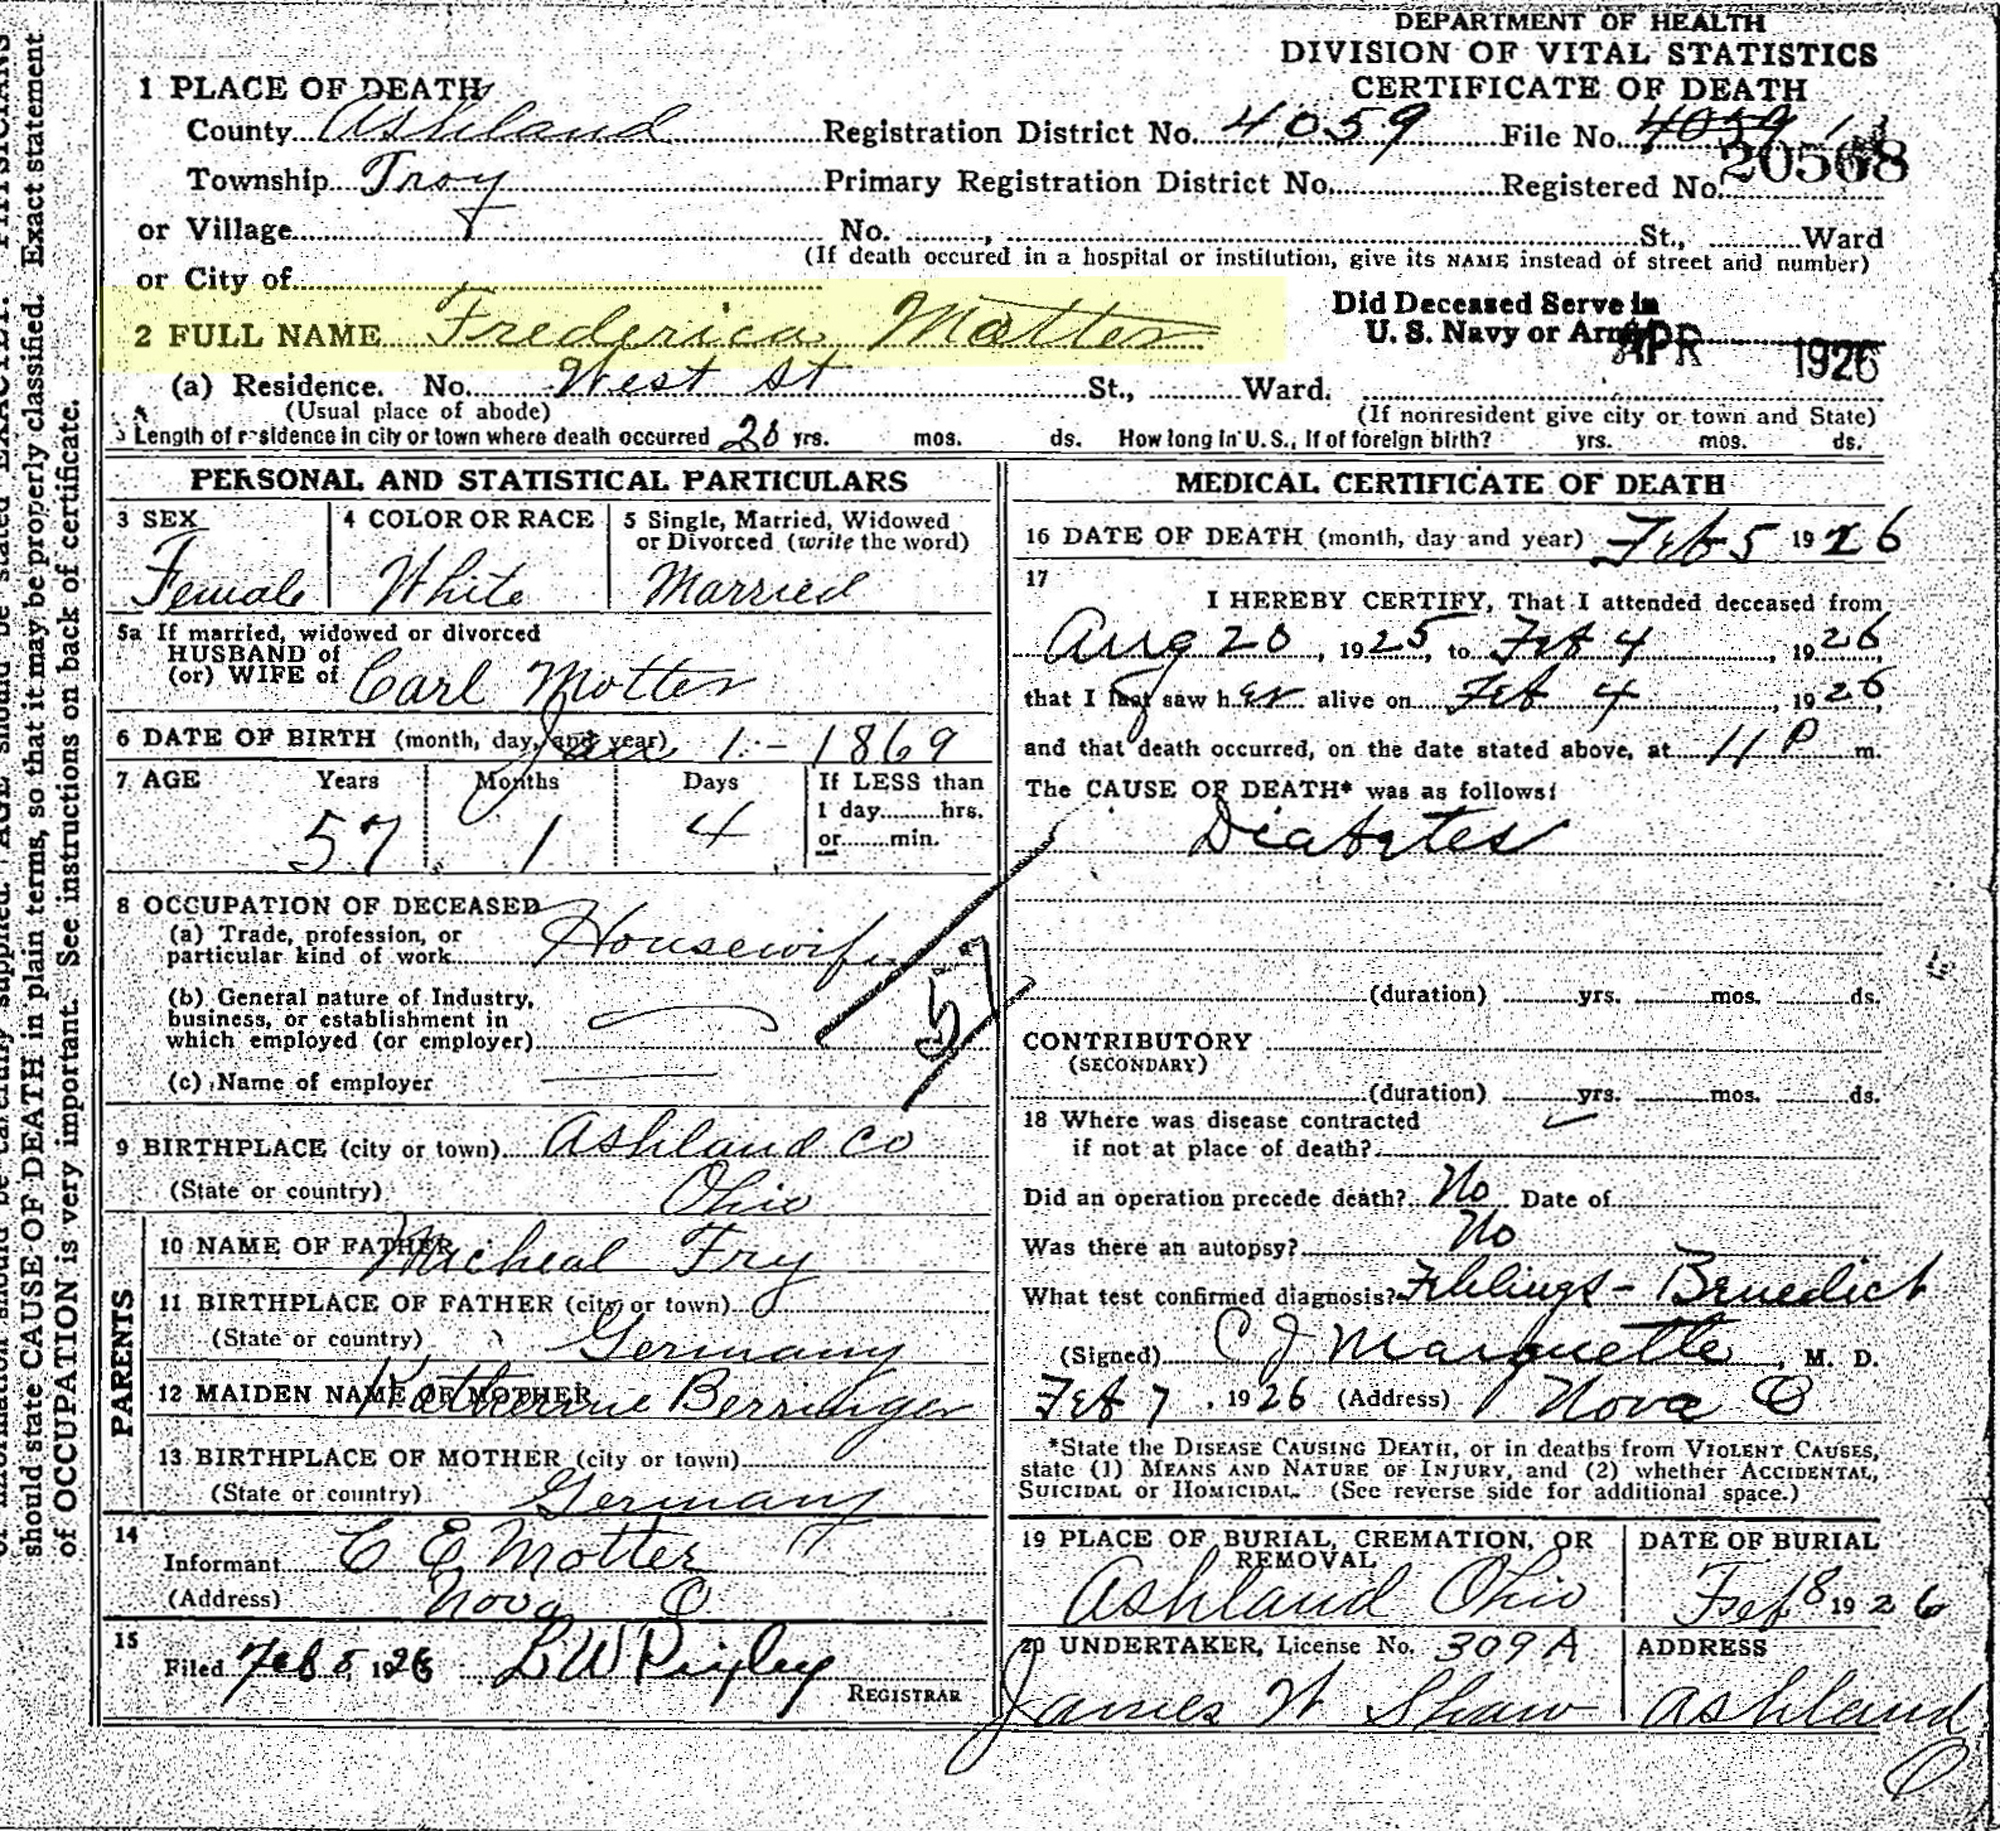 DEPARTMENT OF HEALTH
DIVISION OF VITAL STATISTICS
CERTIFICATE OF DEATH
1 PLACE OF DEATH
County Ashland Registration District No. 4059 File No. 4059
Township Troy Primary Registration District No. Registered No. 20568
or Village No. , St., Ward
(If death occured in a hospital or institution, give its NAME instead of street and number)
or City of
Did Deceased Serve in
U. S. Navy or Army
APR 1926
2 FULL NAME Frederica Motter
(a) Residence. No. West St St., Ward.
(Usual place of abode) (If nonresident give city or town and State)
Length of residence in city or town where death occurred yrs. mos. ds. How long in U. S., if of foreign birth? yrs. mos. ds.
PERSONAL AND STATISTICAL PARTICULARS
3 SEX
Female
4 COLOR OR RACE
White
5 Single, Married, Widowed
or Divorced (write the word)
Married
5a If married, widowed or divorced
HUSBAND of
(or) WIFE of Carl Motter
6 DATE OF BIRTH (month, day, and year) Jan 1 - 1869
7 AGE Years Months Days If LESS than
1 day hrs.
57 1 4 or min.
8 OCCUPATION OF DECEASED
(a) Trade, profession, or
particular kind of work Housewife
(b) General nature of Industry,
business, or establishment in
which employed (or employer)
(c) Name of employer
57
9 BIRTHPLACE (city or town) Ashland Co
(State or country) Ohio
PARENTS
10 NAME OF FATHER Micheal Fry
11 BIRTHPLACE OF FATHER (city or town)
(State or country) Germany
12 MAIDEN NAME OF MOTHER Katherine
13 BIRTHPLACE OF MOTHER (city or town)
(State or country) Germany
14
Informant C E Motter
(Address) Nova O
15
Filed Feb 8 1926 L W
REGISTRAR
MEDICAL CERTIFICATE OF DEATH
16 DATE OF DEATH (month, day and year) Feb 5 1926
17
I HEREBY CERTIFY, That I attended deceased from
Aug 20, 1925, to Feb 4, 1926,
that I last saw her alive on Feb 4, 1926,
and that death occurred, on the date stated above, at 11 P m.
The CAUSE OF DEATH* was as follows:
Diabetes
(duration) yrs. mos. ds.
CONTRIBUTORY
(SECONDARY)
(duration) yrs. mos. ds.
18 Where was disease contracted
if not at place of death?
Did an operation precede death? No Date of
Was there an autopsy? No
What test confirmed diagnosis? - Benedict
(Signed) C J Marquette, M. D.
Feb 7, 1926 (Address) Nova O
*State the DISEASE CAUSING DEATH, or in deaths from VIOLENT CAUSES,
state (1) MEANS AND NATURE OF INJURY, and (2) whether ACCIDENTAL,
SUICIDAL or HOMICIDAL. (See reverse side for additional space.)
19 PLACE OF BURIAL, CREMATION, OR
REMOVAL
Ashland Ohio
DATE OF BURIAL
Feb 8 1926
20 UNDERTAKER, License No. 309 A
James W Shaw
ADDRESS
Ashland O
should state CAUSE OF DEATH in plain terms, so that it may be properly classified. Exact statement
of OCCUPATION is very important. See instructions on back of certificate.